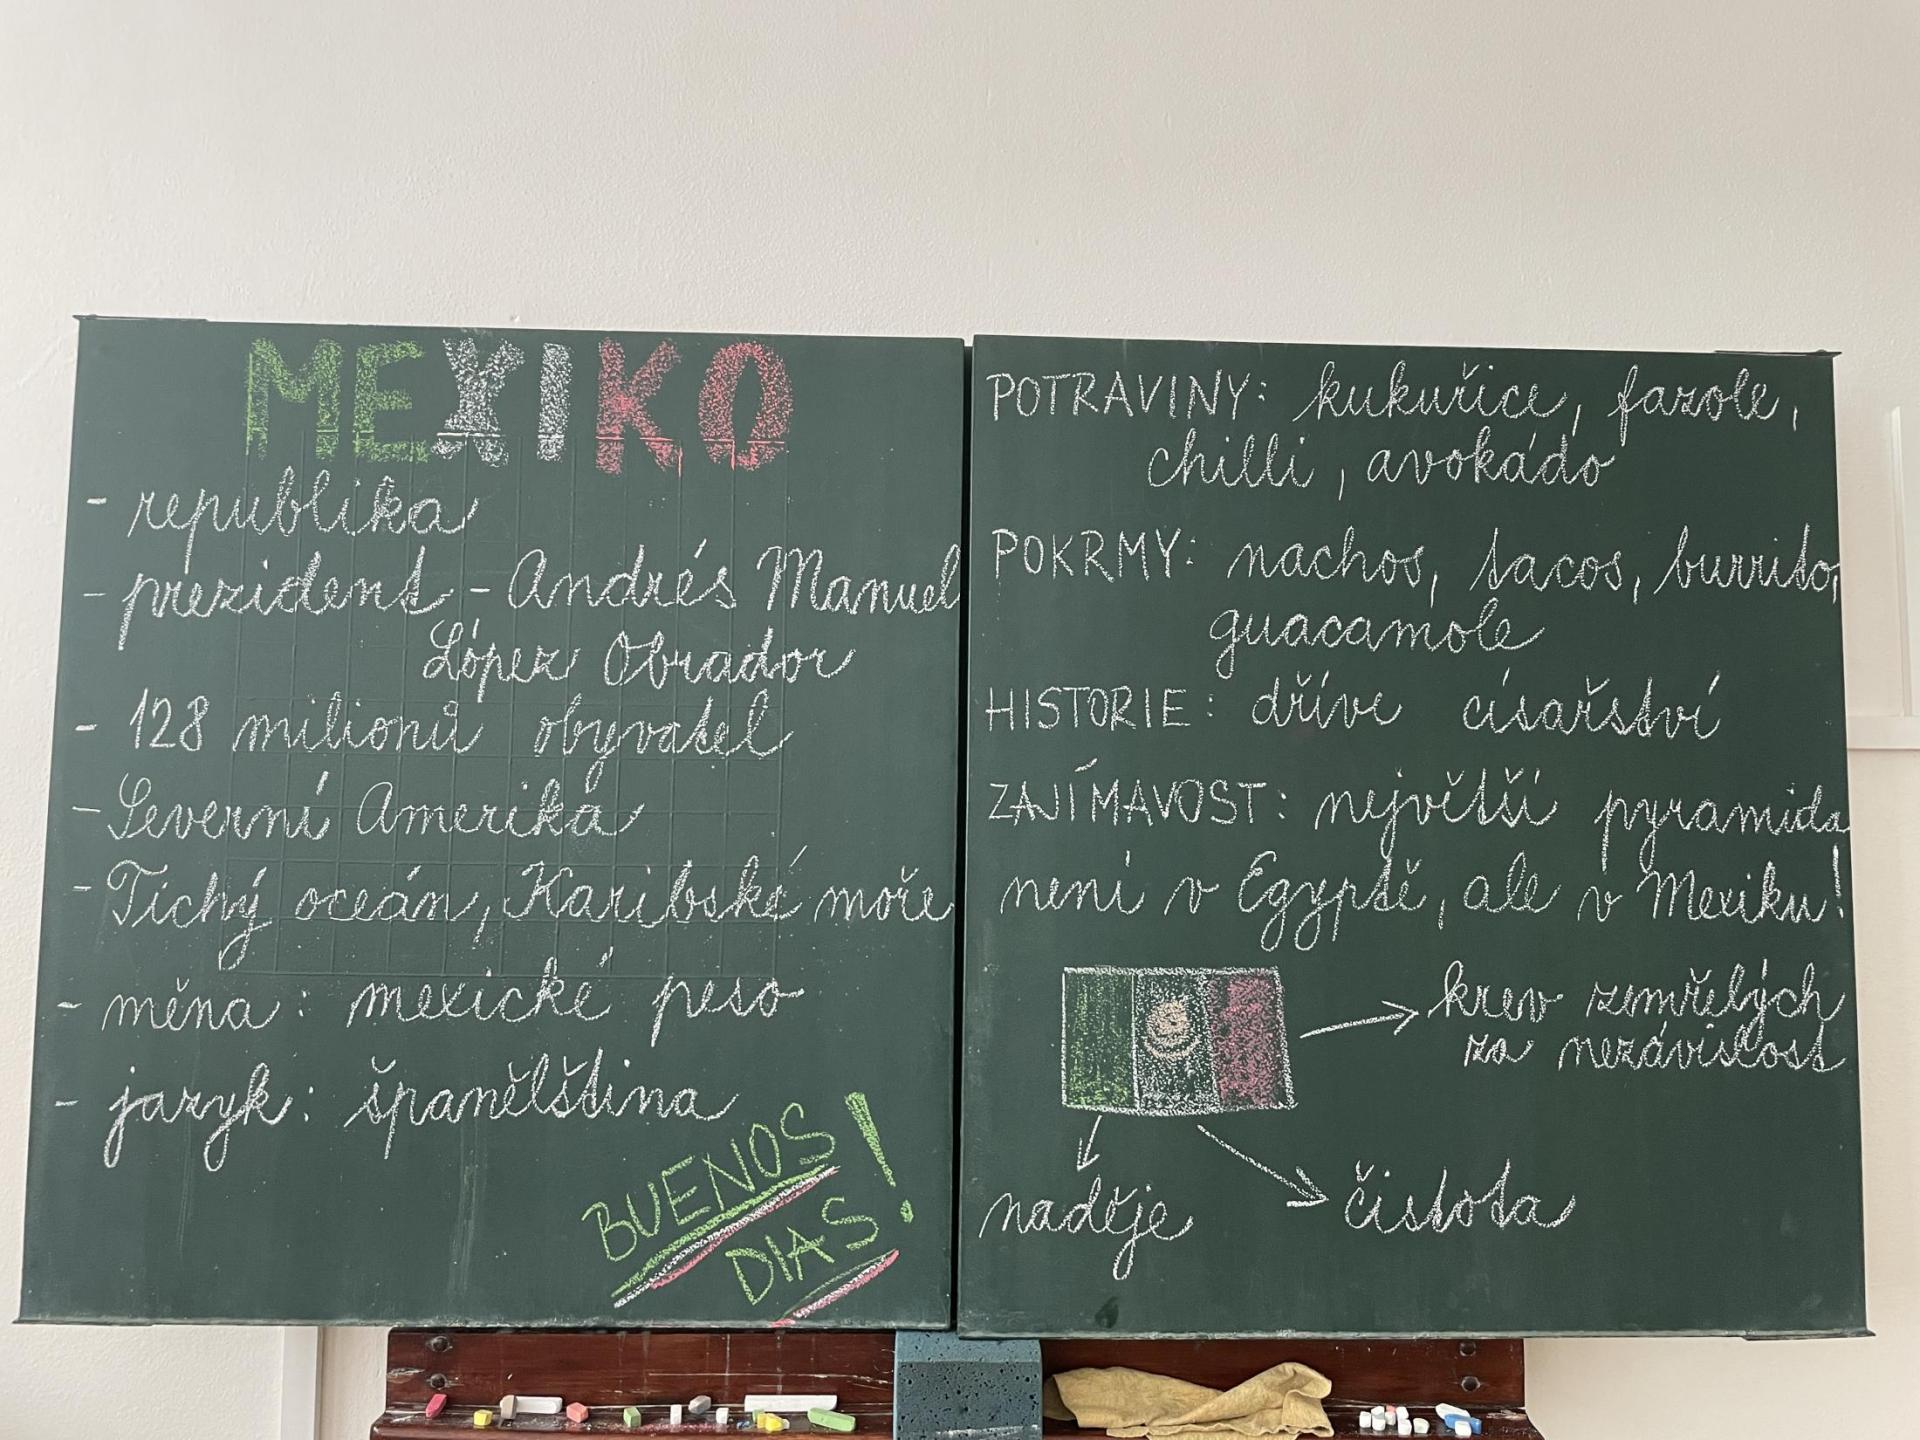 MEXIKO
- republika
- prezident - Andrés Manuel
López Obrador
- 128 milionů obyvatel
- Severní Amerika
- Tichý oceán, Karibské moře
- měna: mexické peso
- jazyk: španělština
BUENOS
DIAS!
POTRAVINY: kukuřice, fazole,
chilli, avokádo
POKRMY: nachos, tacos, burrito,
guacamole
HISTORIE: dříve císařství
ZAJÍMAVOST: největší pyramida
není v Egyptě, ale v Mexiku!
krev zemřelých
za nezávislost
naděje
čistota